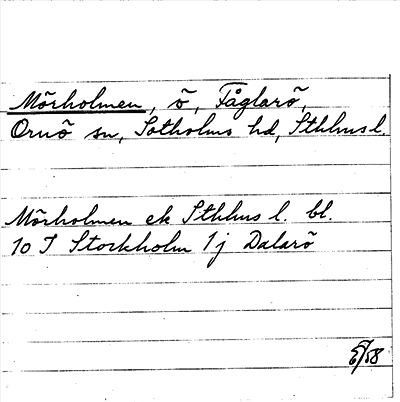 Mörholmen, ö, Fåglarö,
Ornö sn, Sotholms hd, Sthlms l.
Mörholmen ek Sthlms l. bl.
10 I Stockholm 1j Dalarö